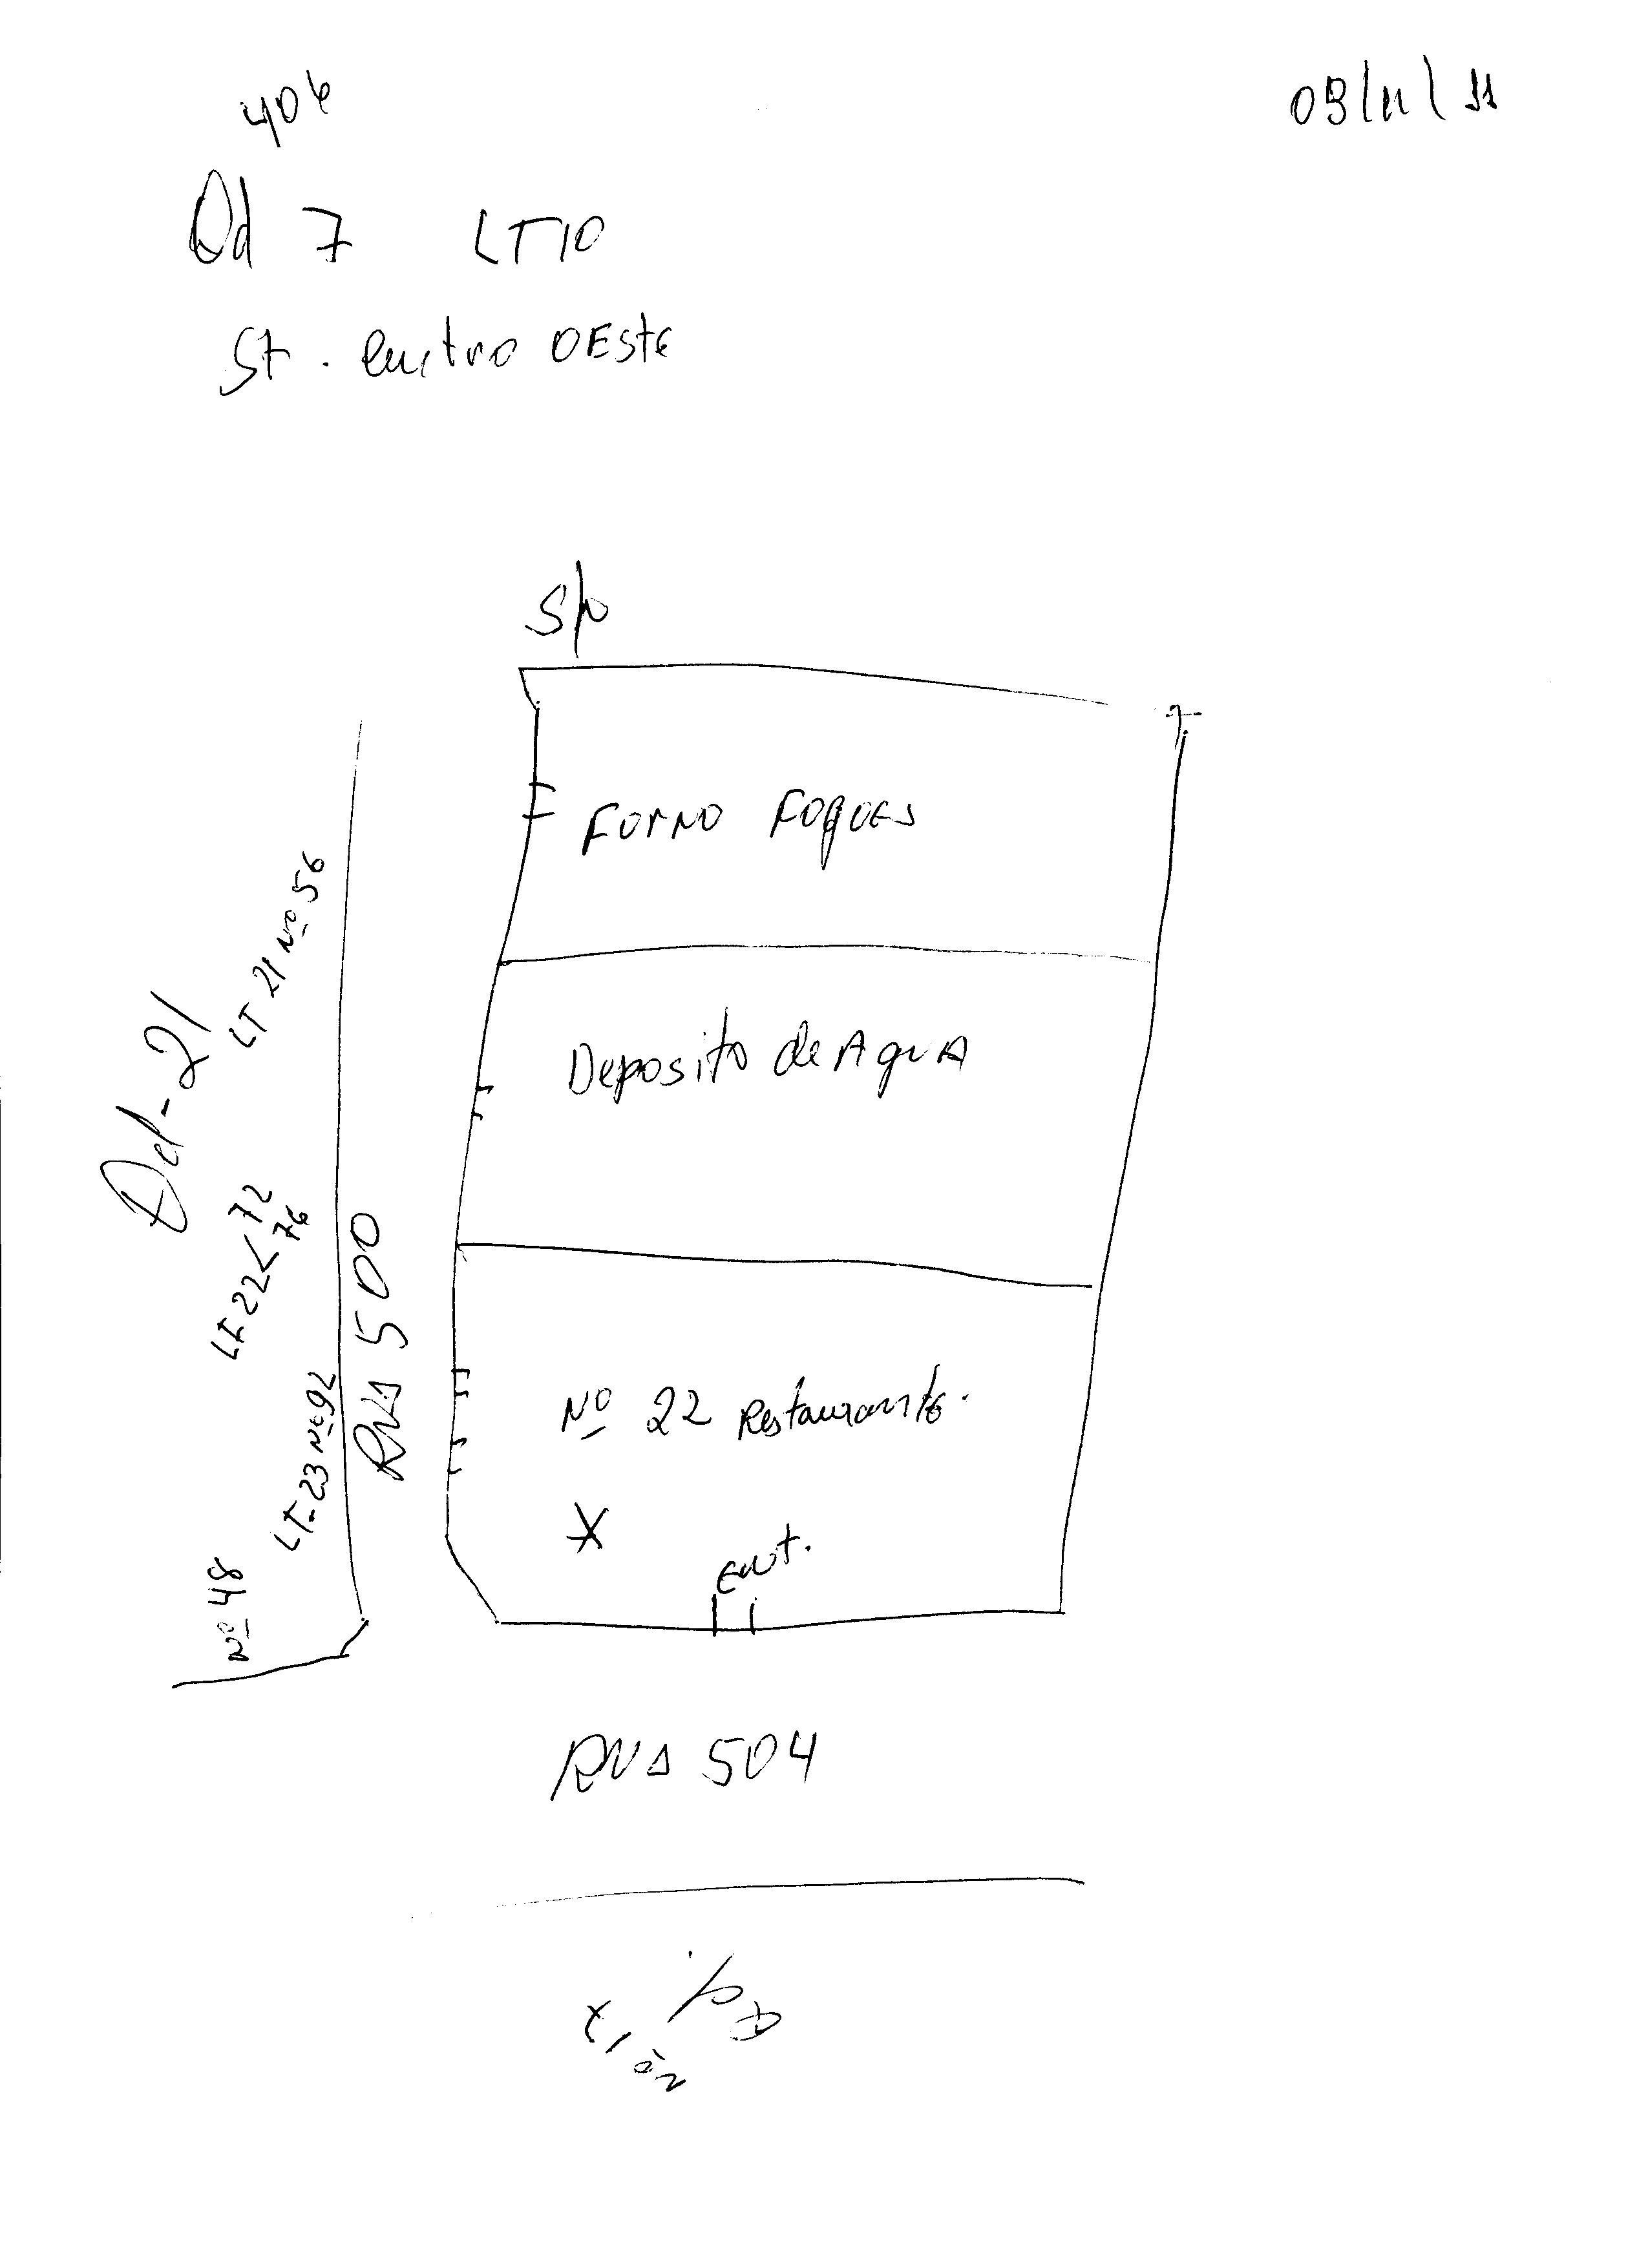 406
09/11/11
Qd 7 LT10
St. Centro OEste
S/N
FORNO FOGOES
Deposito de AguA
Nº 22 Restaurante.
Ent.
Qd-21
LT 21 Nº 56
LT-22 < 72
76
LT-23 Nº 92
Nº 48
RUA 500
RUA 504
Qd.
Nº 17